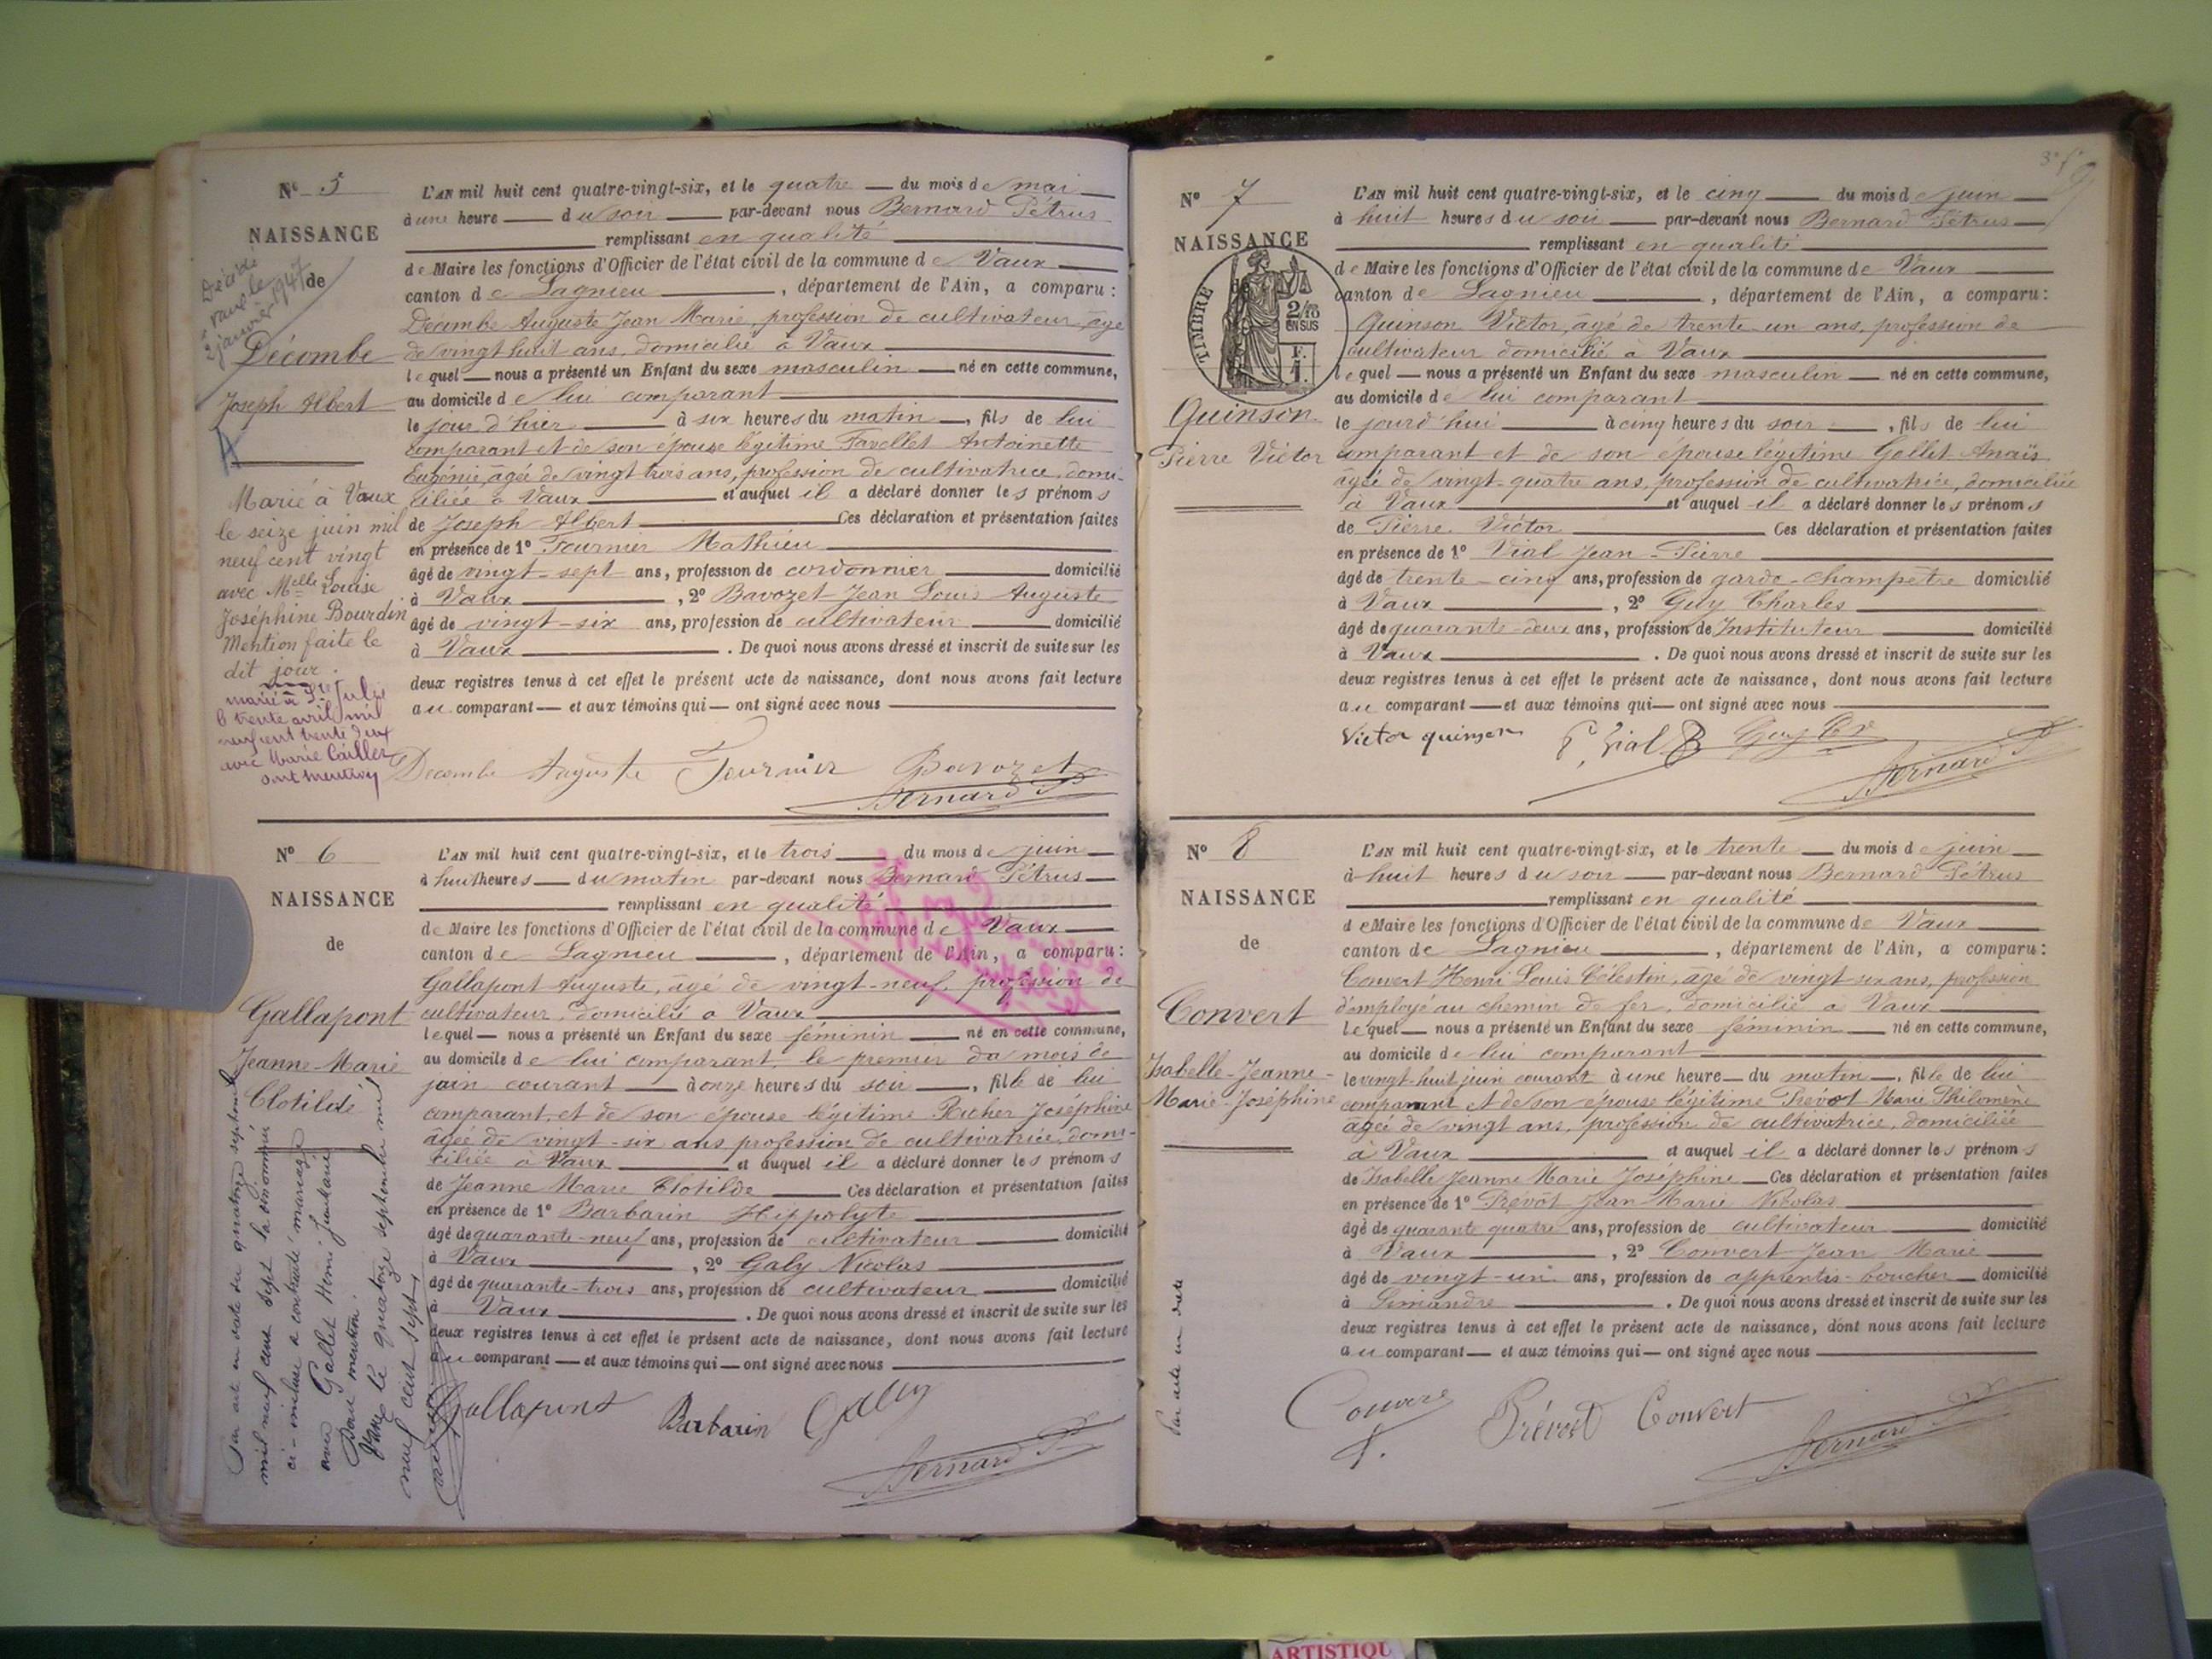 Nº 5
NAISSANCE
de
Décédé
à Vaux le
2 janvier 1947
Décombe
Joseph Albert
Marié à Vaux
le seize juin mil
neuf cent vingt
avec Melle Louise
Joséphine Bourdin
Mention faite le
dit jour.
marié à St Julie
le trente avril mil
neuf cent trente deux
avec Marie Cailler
dont mention
L'AN mil huit cent quatre-vingt-six, et le quatre du mois de mai
à une heure du soir par-devant nous Bernard Pétrus
remplissant en qualité
de Maire les fonctions d'Officier de l'état civil de la commune de Vaux
canton de Lagnieu, département de l'Ain, a comparu:
Décombe Auguste Jean Marie, profession de cultivateur, âgé
de vingt huit ans, domicilié à Vaux
lequel nous a présenté un Enfant du sexe masculin né en cette commune,
au domicile de lui comparant
le jour d'hier à six heures du matin, fils de lui
comparant et de son épouse légitime Favellet Antoinette
Eugénie, âgée de vingt trois ans, profession de cultivatrice, domi-
ciliée à Vaux et auquel il a déclaré donner les prénoms
de Joseph Albert Ces déclaration et présentation faites
en présence de 1º Fournier Mathieu
âgé de vingt-sept ans, profession de cordonnier domicilié
à Vaux, 2º Bavozet Jean Louis Auguste
âgé de vingt-six ans, profession de cultivateur domicilié
à Vaux. De quoi nous avons dressé et inscrit de suite sur les
deux registres tenus à cet effet le présent acte de naissance, dont nous avons fait lecture
au comparant et aux témoins qui ont signé avec nous
Decombe Auguste Fournier Bavozet
Bernard P
Nº 6
NAISSANCE
de
Gallapont
Jeanne-Marie
Clotilde
Par acte en date du quatorze septembre
mil neuf cent sept la prénommée
ci-incluse a contracté mariage
avec Gallet Henri
Dont mention.
Vaux le quatorze septembre mil
neuf cent sept
L'AN mil huit cent quatre-vingt-six, et le trois du mois de juin
à huit heures du matin par-devant nous Bernard Pétrus
remplissant en qualité
de Maire les fonctions d'Officier de l'état civil de la commune de Vaux
canton de Lagnieu, département de l'Ain, a comparu:
Gallapont Auguste, âgé de vingt-neuf, profession de
cultivateur, domicilié à Vaux
lequel nous a présenté un Enfant du sexe féminin né en cette commune,
au domicile de lui comparant, le premier du mois de
juin courant à onze heures du soir, fille de lui
comparant, et de son épouse légitime Richer Joséphine
âgée de vingt-six ans, profession de cultivatrice, domi-
ciliée à Vaux et auquel il a déclaré donner les prénoms
de Jeanne Marie Clotilde Ces déclaration et présentation faites
en présence de 1º Barbarin Hippolyte
âgé de quarante-neuf ans, profession de cultivateur domicilié
à Vaux, 2º Galy Nicolas
âgé de quarante-trois ans, profession de cultivateur domicilié
à Vaux. De quoi nous avons dressé et inscrit de suite sur les
deux registres tenus à cet effet le présent acte de naissance, dont nous avons fait lecture
au comparant et aux témoins qui ont signé avec nous
Gallapont Barbarin Galy
Bernard P
Nº 7
NAISSANCE
de
TIMBRE
2/10
EN SUS
F.
1.
Quinson
Pierre Victor
L'AN mil huit cent quatre-vingt-six, et le cinq du mois de juin
à huit heures du soir par-devant nous Bernard Pétrus
remplissant en qualité
de Maire les fonctions d'Officier de l'état civil de la commune de Vaux
canton de Lagnieu, département de l'Ain, a comparu:
Quinson Victor, âgé de trente-un ans, profession de
cultivateur domicilié à Vaux
lequel nous a présenté un Enfant du sexe masculin né en cette commune,
au domicile de lui comparant
le jourd'hui à cinq heures du soir, fils de lui
comparant et de son épouse légitime Gallet Anaïs
âgée de vingt-quatre ans, profession de cultivatrice, domiciliée
à Vaux et auquel il a déclaré donner les prénoms
de Pierre Victor Ces déclaration et présentation faites
en présence de 1º Vial Jean-Pierre
âgé de trente-cinq ans, profession de garde-champêtre domicilié
à Vaux, 2º Guy Charles
âgé de quarante-deux ans, profession de Instituteur domicilié
à Vaux. De quoi nous avons dressé et inscrit de suite sur les
deux registres tenus à cet effet le présent acte de naissance, dont nous avons fait lecture
au comparant et aux témoins qui ont signé avec nous
Victor quinson P. Vial Guy Ch
Bernard P
Nº 8
NAISSANCE
de
Convert
Isabelle-Jeanne-
Marie-Joséphine
Par acte en date
L'AN mil huit cent quatre-vingt-six, et le trente du mois de juin
à huit heures du soir par-devant nous Bernard Pétrus
remplissant en qualité
de Maire les fonctions d'Officier de l'état civil de la commune de Vaux
canton de Lagnieu, département de l'Ain, a comparu:
Convert Henri Louis Célestin, âgé de vingt-six ans, profession
d'employé au chemin de fer, domicilié à Vaux
lequel nous a présenté un Enfant du sexe féminin né en cette commune,
au domicile de lui comparant
le vingt-huit juin courant à une heure du matin, fille de lui
comparant et de son épouse légitime Prévot Marie Philomène
âgée de vingt ans, profession de cultivatrice, domiciliée
à Vaux et auquel il a déclaré donner les prénoms
de Isabelle Jeanne Marie Joséphine Ces déclaration et présentation faites
en présence de 1º Prévôt Jean Marie Nicolas
âgé de quarante quatre ans, profession de cultivateur domicilié
à Vaux, 2º Convert Jean Marie
âgé de vingt-un ans, profession de apprentis-boucher domicilié
à Simandre. De quoi nous avons dressé et inscrit de suite sur les
deux registres tenus à cet effet le présent acte de naissance, dont nous avons fait lecture
au comparant et aux témoins qui ont signé avec nous
Convert Prévost Convert
Bernard P
ARTISTIQU